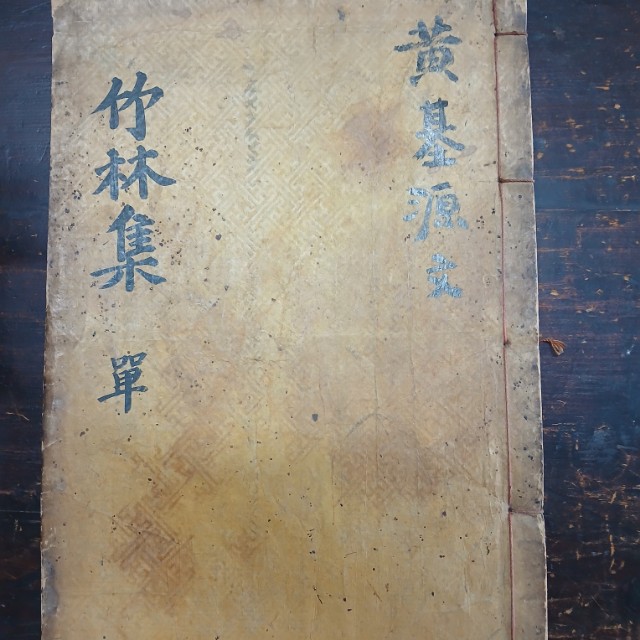 黄基源文
竹林集 單